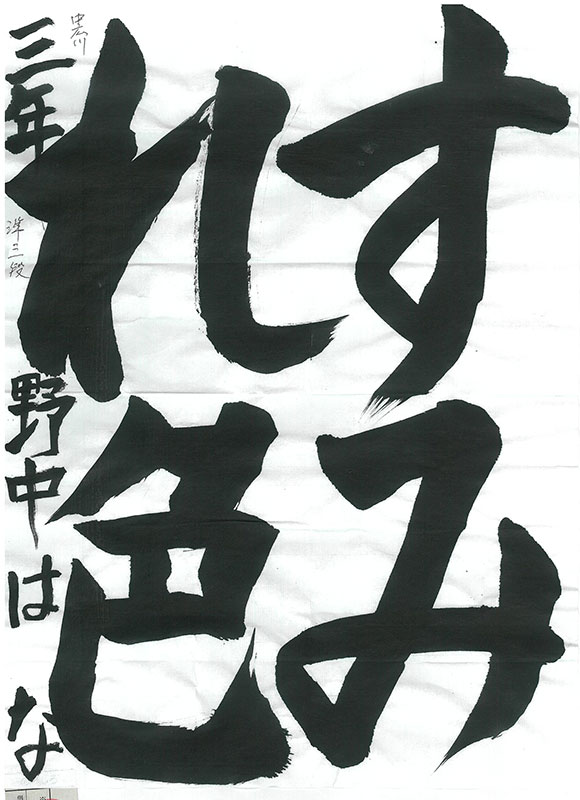 すみ
れ色
三年 野中はな
中広川
準三段